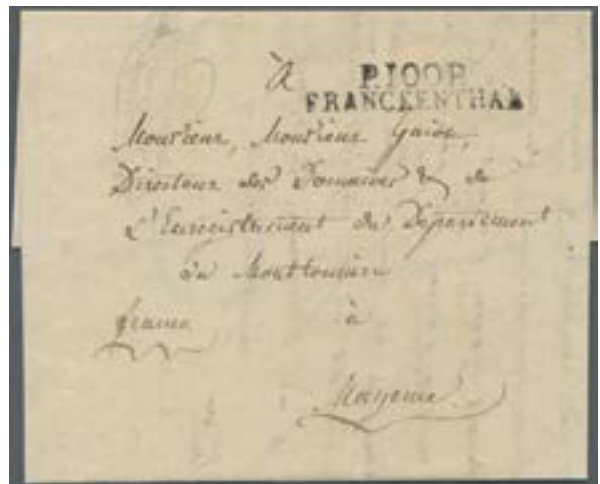 à P.100.P.
FRANCKENTHAL
Monsieur, Monsieur
Directeur des Domaines & de
L'Enregistrement du Département
du Monttonnerre
franco à
Mayence